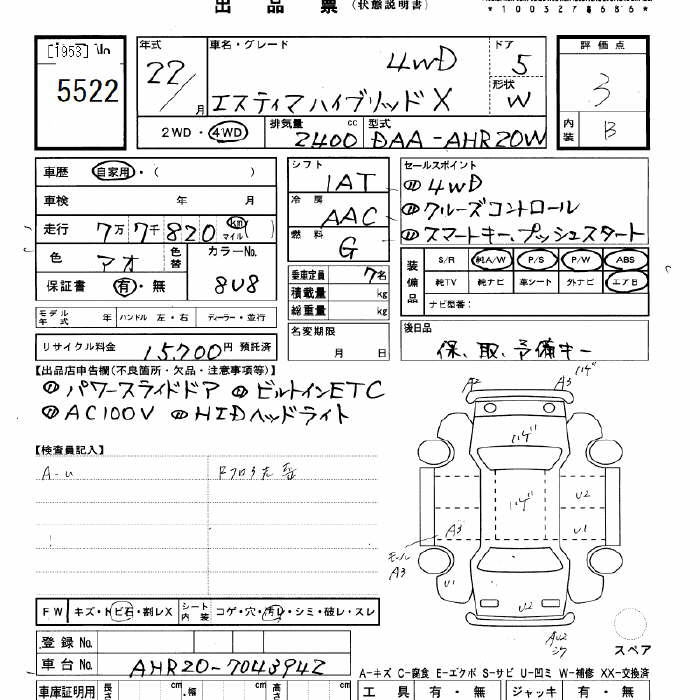 出 品 票 (状態説明書)
*1003278686*
[1953] No
5522
年式
22/
月
車名・グレード
4WD
エスティマハイブリッドX
ドア
5
形状
W
評価点
3
内装
B
2WD・4WD
排気量
2400
cc
型式
DAA-AHR20W
車歴
自家用・( )
車検
年 月
走行
7万7千820
km
マイル
色
アオ
色替
カラーNo.
8U8
保証書
有・無
シフト
IAT
冷房
AAC
燃料
G
乗車定員
7名
積載量
kg
総重量
kg
名変期限
月 日
セールスポイント
4WD
クルーズコントロール
スマートキー、プッシュスタート
装備品
S/R
純A/W
P/S
P/W
ABS
純TV
純ナビ
革シート
外ナビ
エアB
ナビ型番:
モデル年式
年
ハンドル 左・右
ディーラー・並行
リサイクル料金
15,700円
預託済
後日品
保、取、予備キー
【出品店申告欄(不良箇所・欠品・注意事項等)】
パワースライドドア
ビルトインETC
AC100V
HIDヘッドライト
【検査員記入】
A-u
A2
A3
U2
U1
A3
モール
A3
U1
U2
スペア
FW
キズ・トビ石・割レX
シート内装
コゲ・穴・汚レ・シミ・破レ・スレ
登録 No.
車台 No.
AHR20-7043942
A-キズ C-腐食 E-エクボ S-サビ U-凹ミ W-補修 XX-交換済
車庫証明用
長さ
cm
幅
cm
高さ
cm
工具
有・無
ジャッキ
有・無